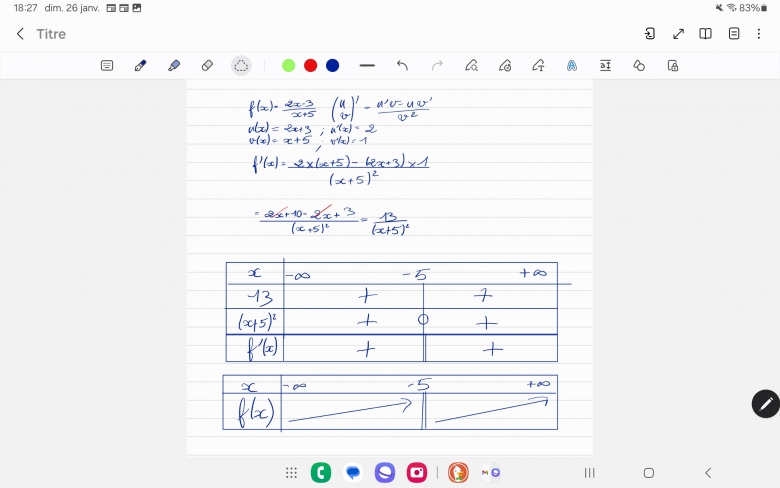 18:27 dim. 26 janv. 83%
Titre
f(x) = 2x-3/x+5 (u/v)' = u'v - uv'/v²
u(x) = 2x+3 ; u'(x) = 2
v(x) = x+5 ; v'(x) = 1
f'(x) = 2×(x+5) - (2x+3)×1/(x+5)²
= 2x+10-2x+3/(x+5)² = 13/(x+5)²
x -∞ -5 +∞
13 + +
(x+5)² + 0 +
f'(x) + || +
x -∞ -5 +∞
f(x)